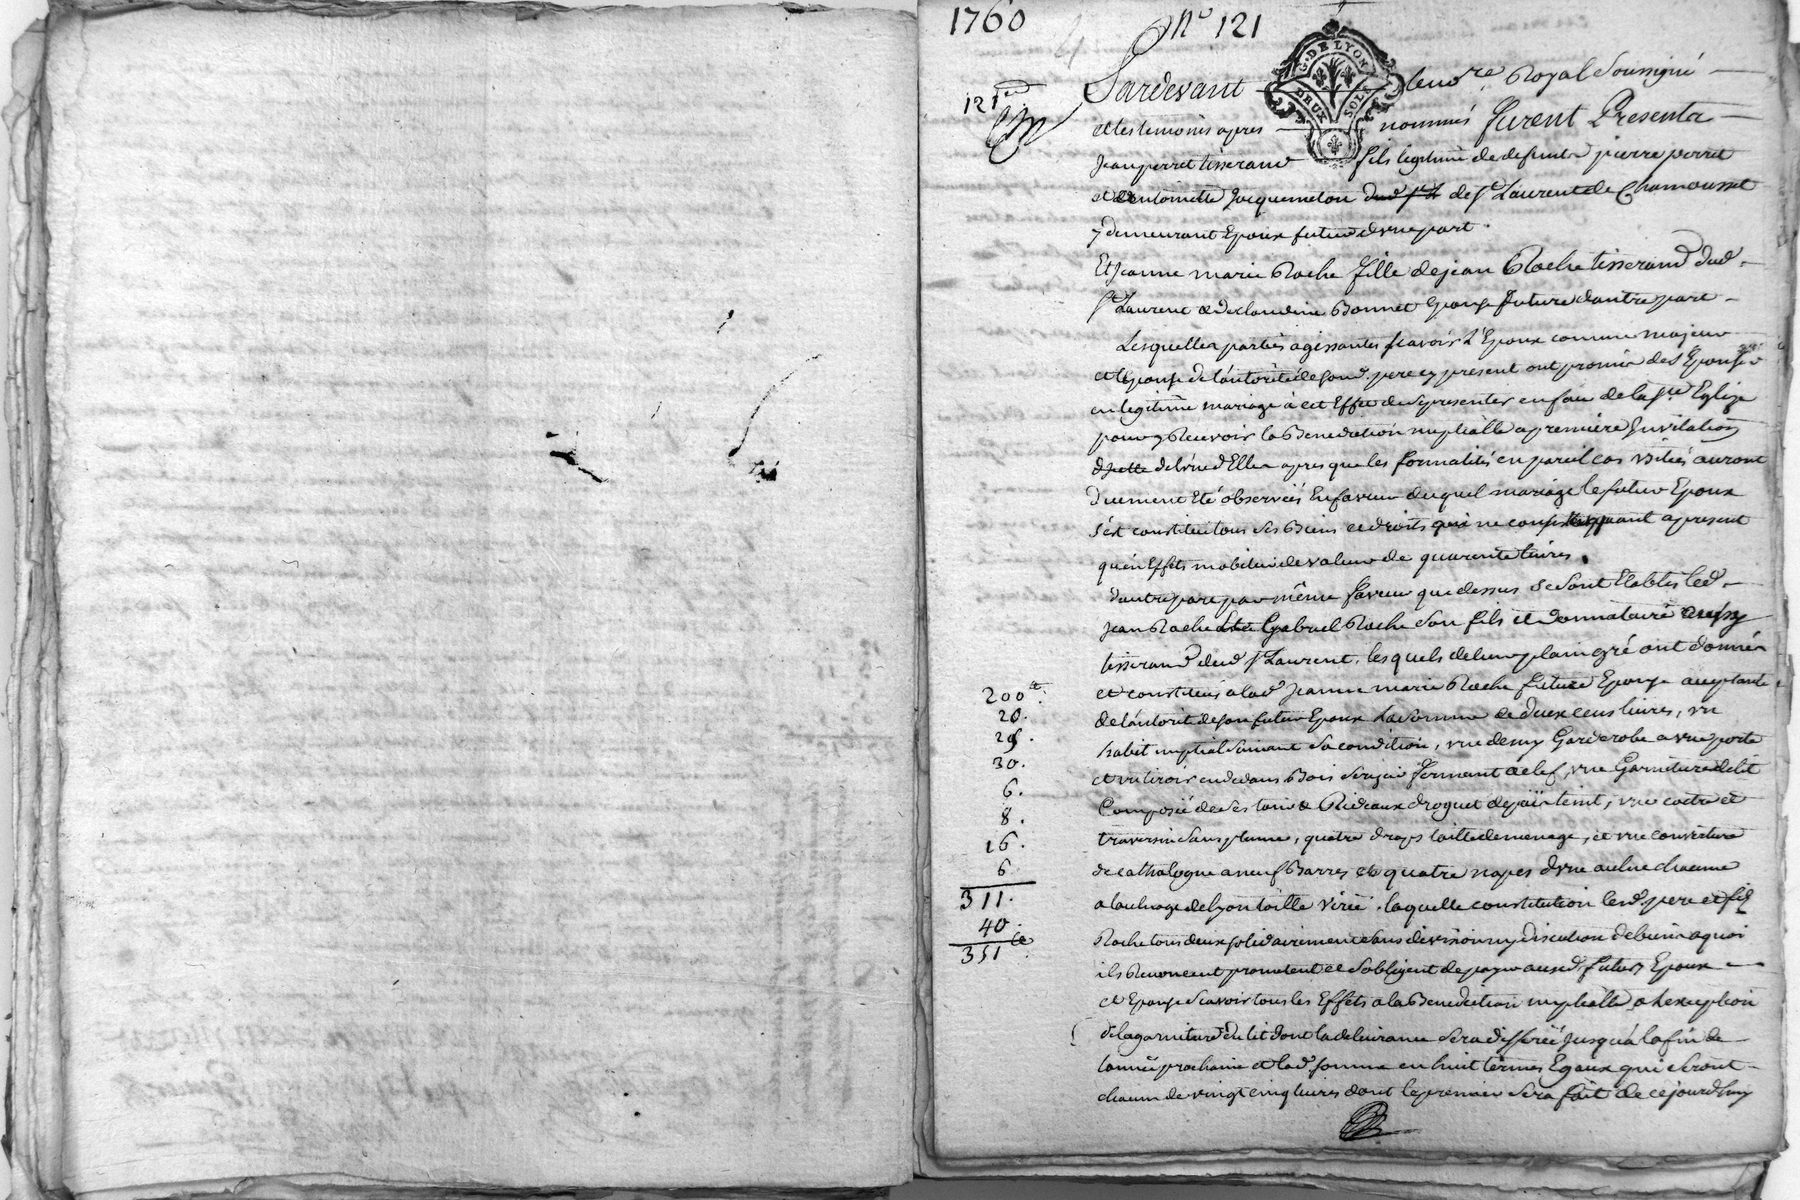 1760
Nº 121
121e
G. DE LYON
DEUX SOLS
Pardevant le no.re Royal soussigné
et les temoins apres nommés furent Presents
Jean perret tisserand fils legitime de defunts pierre perret
et d'antoinette Jacquemeton de St Laurent de Chamousset
y demeurant Epoux futur d'une part.
Et Jeanne marie Roche fille de jean Roche tisserand dud.
St Laurent et de claudine Bonnet Epouse future d'autre part
Lesquelles parties agissantes scavoir L'Epoux comme majeur
et l'epouse de l'autorité de sond. pere cy present ont promis de s'Epouser
en legitime mariage à cet Effet de se presenter en face de la Ste Eglise
pour y Recevoir la Benediction nuptialle a premiere Invitation
de l'un d'Elles apres que les formalités en pareil cas usitées auront
duement Eté observées En faveur duquel mariage le futur Epoux
s'est constitué tous ses Biens et droits qui ne consistent quant a present
qu'en Effets mobiliers de valeur de quarente livres.
d'autre part par même faveur que dessus se sont Etablis led.
Jean Roche et Gabriel Roche son fils et donnataire aussy
tisserand dud. St Laurent. lesquels de leur plain gré ont donné
et constitué a lad. Jeanne marie Roche future Epouse acceptante
de l'autorité de son futur Epoux La somme de deux cens livres, un
habit nuptial suivant sa condition, une demy Garderobe a une porte
et un tiroir en dedans Bois serizier fermant à clef, une Garniture de lit
Composée de ses tour de Rideaux droguet de païs teint, une coitre et
traversin sans plume, quatre draps toille de menage, et une couverture
de cathalogne a neuf Barres et quatre napes d'une aulne chacune
a l'aulnage de Lyon toille virée. laquelle constitution lesd. pere et fils
Roche tous deux solidairement sans division ny discution de biens a quoi
ils Renoncent promettent et s'obligent de payer auxd. futurs Epoux
et Epouse scavoir tous les Effets a la Benediction nuptialle a L'exception
de la garniture du lit dont la delivrance sera differée jusqu'à la fin de
l'année prochaine et lad. somme en huit termes Egaux qui seront
chacun de vingt cinq livres dont le premier sera fait de ce jourd'huy
200.
20.
25.
30.
6.
8.
16.
6
311.
40.
351